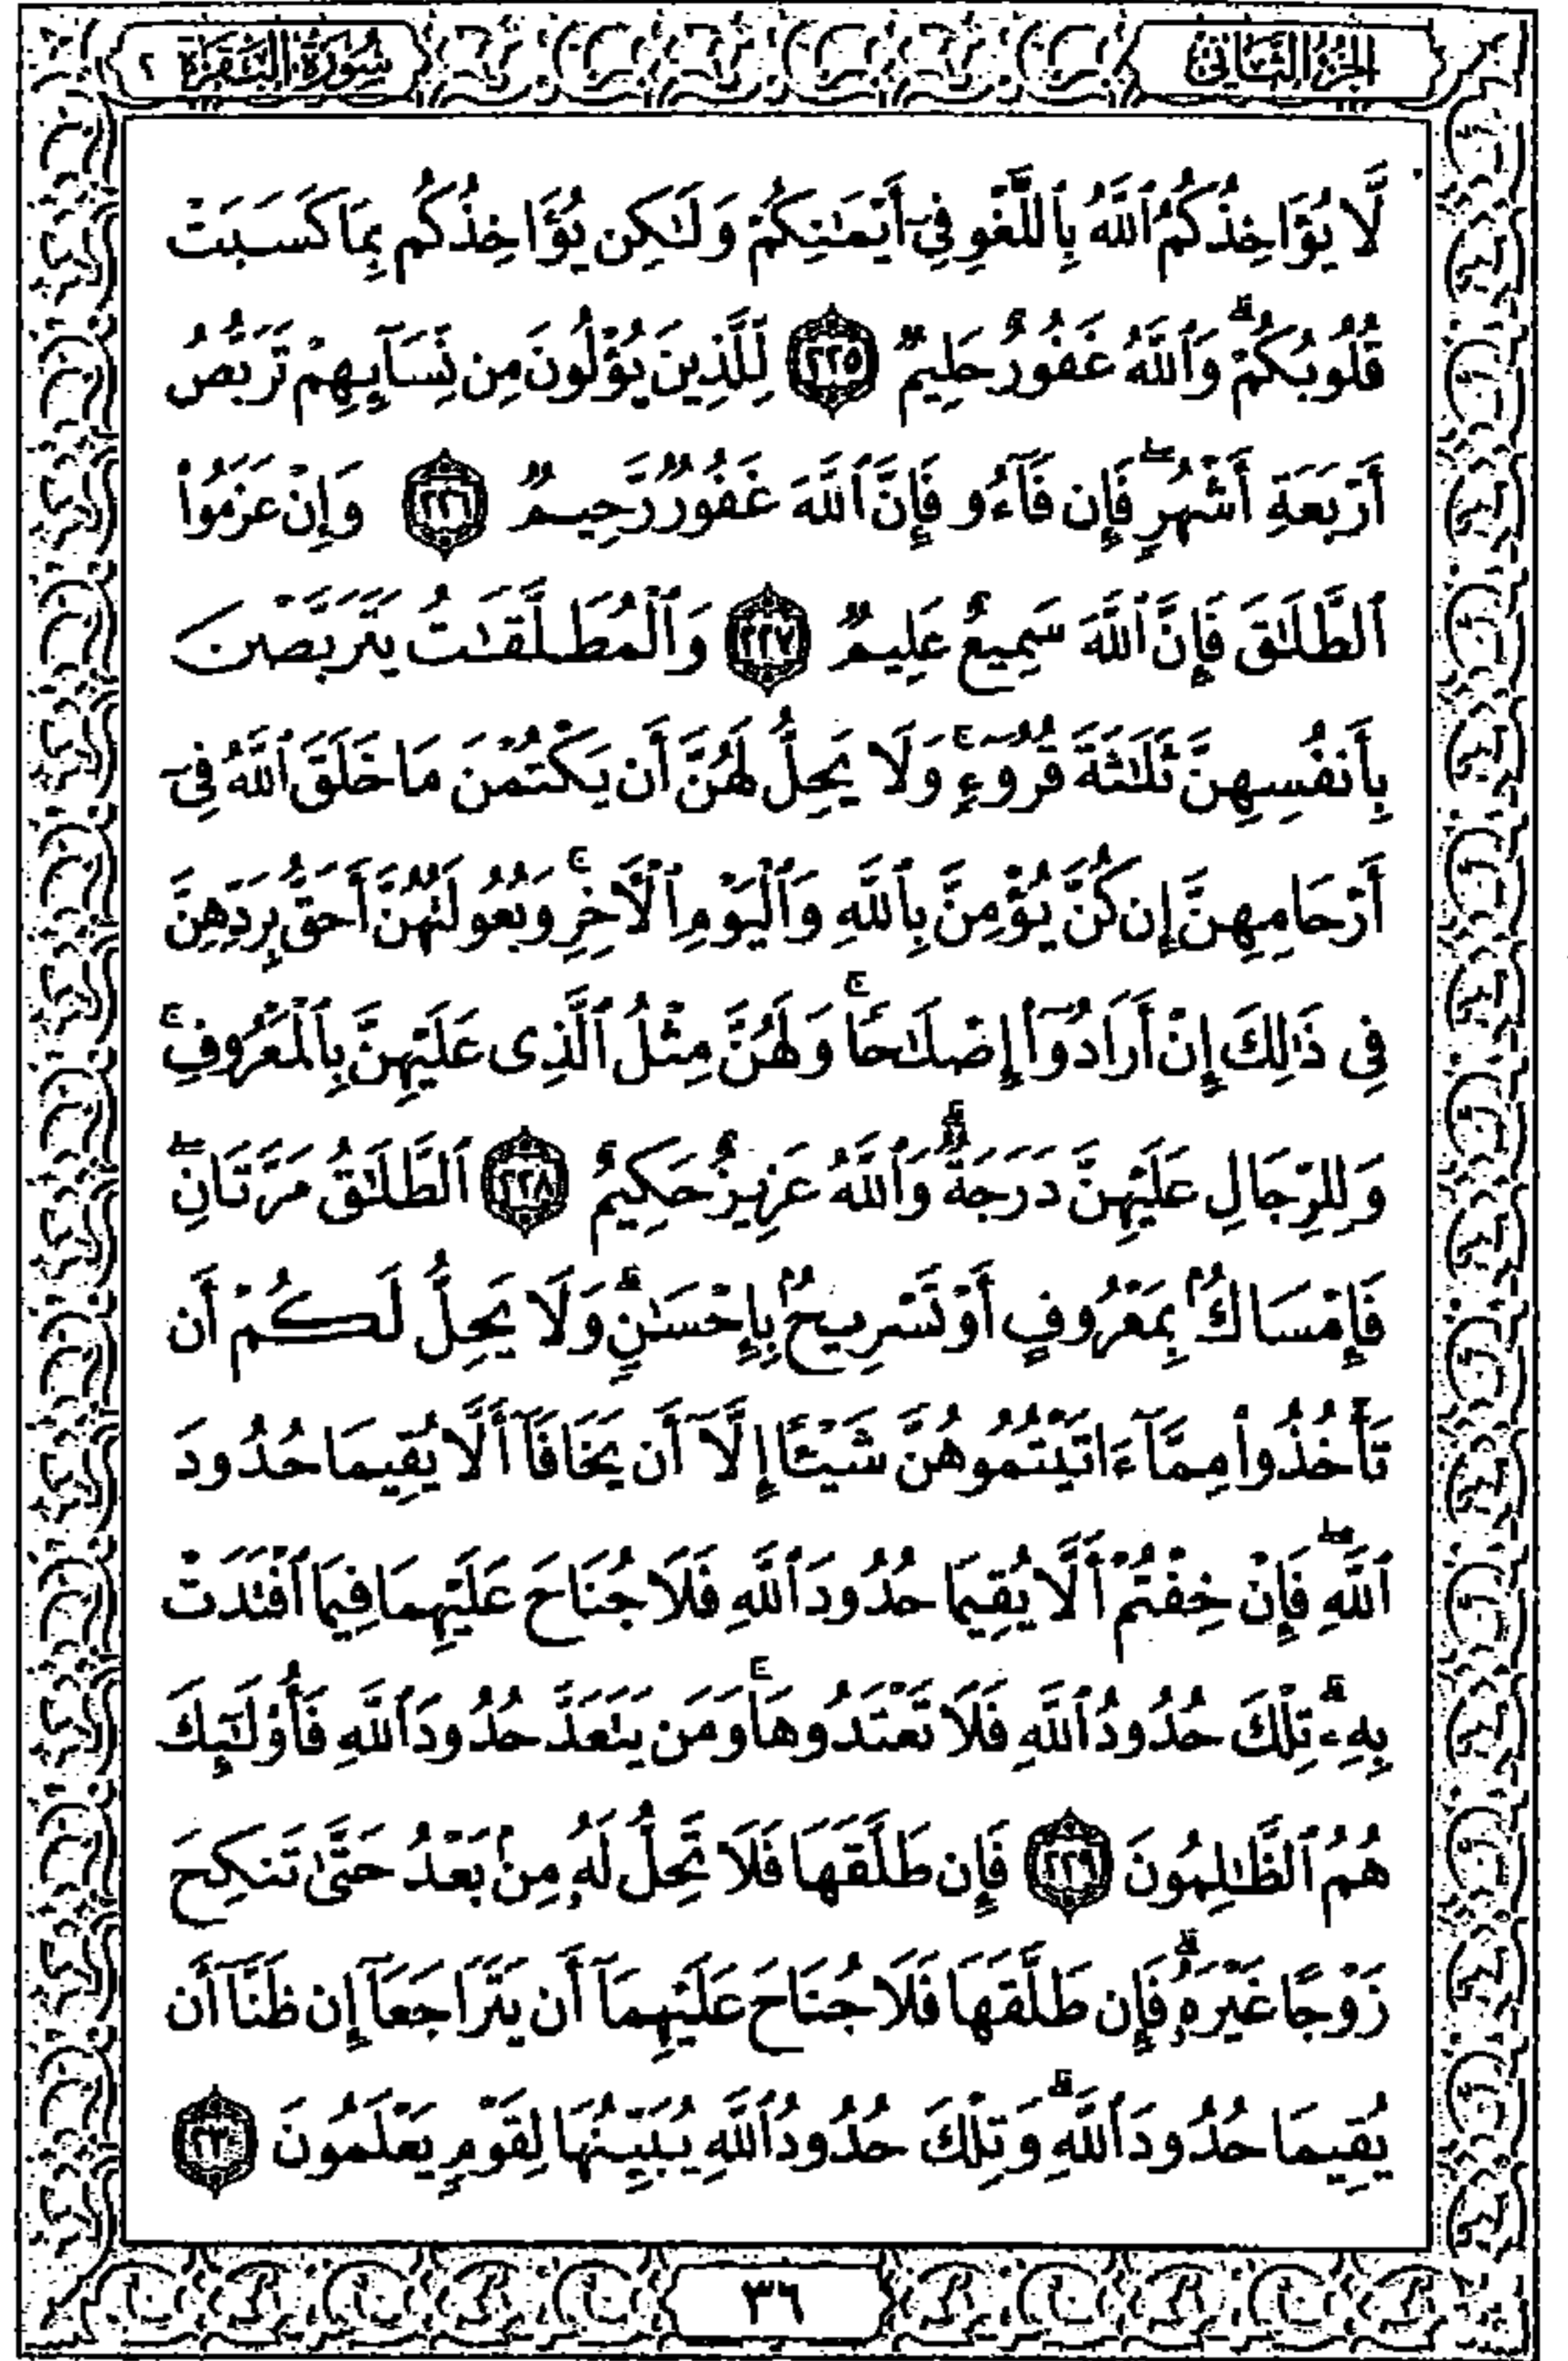 الجزء الثاني
سورة البقرة ٢
لَّا يُؤَاخِذُكُمُ ٱللَّهُ بِٱللَّغْوِ فِىٓ أَيْمَـٰنِكُمْ وَلَـٰكِن يُؤَاخِذُكُم بِمَا كَسَبَتْ
قُلُوبُكُمْ ۗ وَٱللَّهُ غَفُورٌ حَلِيمٌ ٢٢٥ لِّلَّذِينَ يُؤْلُونَ مِن نِّسَآئِهِمْ تَرَبُّصُ
أَرْبَعَةِ أَشْهُرٍ ۖ فَإِن فَآءُو فَإِنَّ ٱللَّهَ غَفُورٌ رَّحِيمٌ ٢٢٦ وَإِنْ عَزَمُوا۟
ٱلطَّلَـٰقَ فَإِنَّ ٱللَّهَ سَمِيعٌ عَلِيمٌ ٢٢٧ وَٱلْمُطَلَّقَـٰتُ يَتَرَبَّصْنَ
بِأَنفُسِهِنَّ ثَلَـٰثَةَ قُرُوٓءٍ ۚ وَلَا يَحِلُّ لَهُنَّ أَن يَكْتُمْنَ مَا خَلَقَ ٱللَّهُ فِىٓ
أَرْحَامِهِنَّ إِن كُنَّ يُؤْمِنَّ بِٱللَّهِ وَٱلْيَوْمِ ٱلْـَٔاخِرِ ۚ وَبُعُولَتُهُنَّ أَحَقُّ بِرَدِّهِنَّ
فِى ذَٰلِكَ إِنْ أَرَادُوٓا۟ إِصْلَـٰحًا ۚ وَلَهُنَّ مِثْلُ ٱلَّذِى عَلَيْهِنَّ بِٱلْمَعْرُوفِ ۚ
وَلِلرِّجَالِ عَلَيْهِنَّ دَرَجَةٌ ۗ وَٱللَّهُ عَزِيزٌ حَكِيمٌ ٢٢٨ ٱلطَّلَـٰقُ مَرَّتَانِ ۖ
فَإِمْسَاكٌۢ بِمَعْرُوفٍ أَوْ تَسْرِيحٌۢ بِإِحْسَـٰنٍ ۗ وَلَا يَحِلُّ لَكُمْ أَن
تَأْخُذُوا۟ مِمَّآ ءَاتَيْتُمُوهُنَّ شَيْـًٔا إِلَّآ أَن يَخَافَآ أَلَّا يُقِيمَا حُدُودَ
ٱللَّهِ ۖ فَإِنْ خِفْتُمْ أَلَّا يُقِيمَا حُدُودَ ٱللَّهِ فَلَا جُنَاحَ عَلَيْهِمَا فِيمَا ٱفْتَدَتْ
بِهِۦ ۗ تِلْكَ حُدُودُ ٱللَّهِ فَلَا تَعْتَدُوهَا ۚ وَمَن يَتَعَدَّ حُدُودَ ٱللَّهِ فَأُو۟لَـٰٓئِكَ
هُمُ ٱلظَّـٰلِمُونَ ٢٢٩ فَإِن طَلَّقَهَا فَلَا تَحِلُّ لَهُۥ مِنۢ بَعْدُ حَتَّىٰ تَنكِحَ
زَوْجًا غَيْرَهُۥ ۗ فَإِن طَلَّقَهَا فَلَا جُنَاحَ عَلَيْهِمَآ أَن يَتَرَاجَعَآ إِن ظَنَّآ أَن
يُقِيمَا حُدُودَ ٱللَّهِ ۗ وَتِلْكَ حُدُودُ ٱللَّهِ يُبَيِّنُهَا لِقَوْمٍ يَعْلَمُونَ ٢٣٠
٣٦